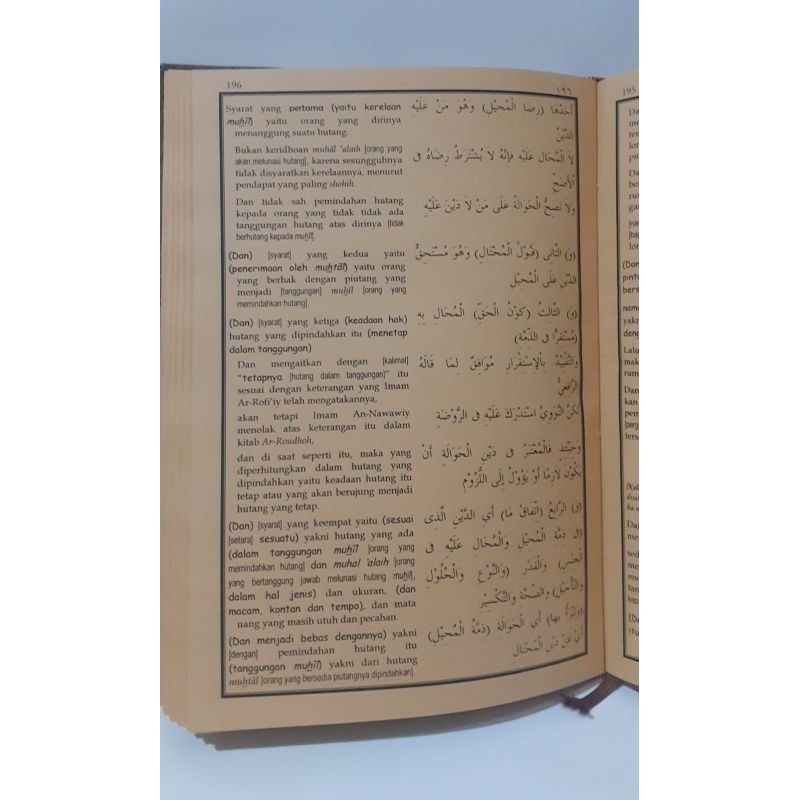 196
١٩٦
Syarat yang pertama (yaitu kerelaan
muḥīl) yaitu orang yang dirinya
menanggung suatu hutang.
Bukan keridhoan muhāl 'alaih [orang yang
akan melunasi hutang], karena sesungguhnya
tidak disyaratkan kerelaannya, menurut
pendapat yang paling shohih.
Dan tidak sah pemindahan hutang
kepada orang yang tidak tidak ada
tanggungan hutang atas dirinya [tidak
berhutang kepada muḥīl].
(Dan) [syarat] yang kedua yaitu
(penerimaan oleh muḥtāl) yaitu orang
yang berhak dengan piutang yang
menjadi [tanggungan] muḥīl [orang yang
memindahkan hutang].
(Dan) [syarat] yang ketiga (keadaan hak)
hutang yang dipindahkan itu (menetap
dalam tanggungan)
Dan mengaitkan dengan [kalimat]
"tetapnya [hutang dalam tanggungan]" itu
sesuai dengan keterangan yang Imam
Ar-Rofi'iy telah mengatakannya,
akan tetapi Imam An-Nawawiy
menolak atas keterangan itu dalam
kitab Ar-Roudhoh,
dan di saat seperti itu, maka yang
diperhitungkan dalam hutang yang
dipindahkan yaitu keadaan hutang itu
tetap atau yang akan berujung menjadi
hutang yang tetap.
(Dan) [syarat] yang keempat yaitu (sesuai
[setara] sesuatu) yakni hutang yang ada
(dalam tanggungan muḥīl [orang yang
memindahkan hutang] dan muhal 'alaih [orang
yang bertanggung jawab melunasi hutang muḥīl],
dalam hal jenis) dan ukuran, (dan
macam, kontan dan tempo), dan mata
uang yang masih utuh dan pecahan.
(Dan menjadi bebas dengannya) yakni
[dengan] pemindahan hutang itu
(tanggungan muḥīl) yakni dari hutang
muḥtāl [orang yang bersedia piutangnya dipindahkan].
أَحَدُهَا (رِضَا الْمُحِيْلِ) وَهُوَ مَنْ عَلَيْهِ
الدَّيْنُ
لَا الْمُحَالِ عَلَيْهِ فَإِنَّهُ لَا يُشْتَرَطُ رِضَاهُ فِى
الْأَصَحِّ
وَلَا تَصِحُّ الْحَوَالَةُ عَلَى مَنْ لَا دَيْنَ عَلَيْهِ
(وَ) الثَّانِى (قَبُوْلُ الْمُحْتَالِ) وَهُوَ مُسْتَحِقُّ
الدَّيْنِ عَلَى الْمُحِيْلِ
(وَ) الثَّالِثُ (كَوْنُ الْحَقِّ) الْمُحَالِ بِهِ
(مُسْتَقِرًّا فِى الذِّمَّةِ)
وَالتَّقْيِيْدُ بِالْإِسْتِقْرَارِ مُوَافِقٌ لِمَا قَالَهُ
الرَّافِعِيُّ
لَكِنَّ النَّوَوِيَّ اسْتَدْرَكَ عَلَيْهِ فِى الرَّوْضَةِ
وَحِيْنَئِذٍ فَالْمُعْتَبَرُ فِى دَيْنِ الْحَوَالَةِ أَنْ
يَكُوْنَ لَازِمًا أَوْ يَؤُوْلُ إِلَى اللُّزُوْمِ
(وَ) الرَّابِعُ (اتِّفَاقُ مَا) أَيِ الدَّيْنِ الَّذِى
(فِى ذِمَّةِ الْمُحِيْلِ وَالْمُحَالِ عَلَيْهِ فِى
الْجِنْسِ) وَالْقَدْرِ (وَالنَّوْعِ وَالْحُلُوْلِ
وَالتَّأْجِيْلِ) وَالصِّحَّةِ وَالتَّكْسِيْرِ
(وَتَبْرَأُ بِهَا) أَيِ الْحَوَالَةِ (ذِمَّةُ الْمُحِيْلِ)
أَيْ عَنْ دَيْنِ الْمُحْتَالِ
195